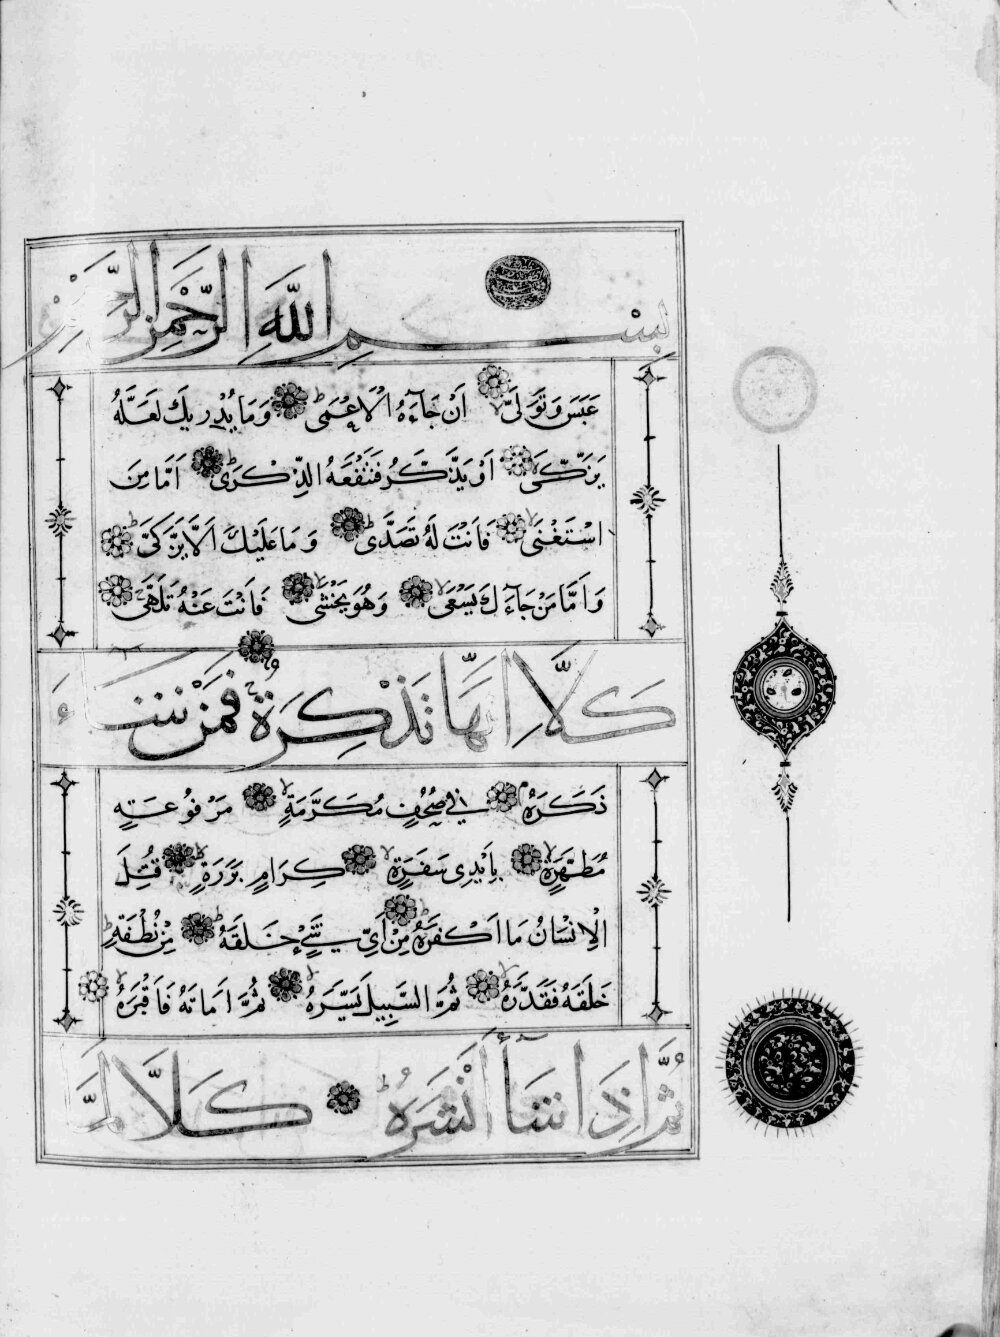 بِسْمِ اللَّهِ الرَّحْمٰنِ الرَّحِيمِ
عَبَسَ وَتَوَلَّىٰ اَنْ جَآءَهُ الْاَعْمَىٰ وَمَا يُدْرِيكَ لَعَلَّهُ
يَزَّكَّىٰ اَوْ يَذَّكَّرُ فَتَنْفَعَهُ الذِّكْرَىٰ اَمَّا مَنِ
اسْتَغْنَىٰ فَاَنْتَ لَهُ تَصَدَّىٰ وَمَا عَلَيْكَ اَلَّا يَزَّكَّىٰ
وَاَمَّا مَنْ جَآءَكَ يَسْعَىٰ وَهُوَ يَخْشَىٰ فَاَنْتَ عَنْهُ تَلَهَّىٰ
كَلَّا اِنَّهَا تَذْكِرَةٌ فَمَنْ شَاءَ
ذَكَرَهُ فِي صُحُفٍ مُكَرَّمَةٍ مَرْفُوعَةٍ
مُطَهَّرَةٍ بِاَيْدِي سَفَرَةٍ كِرَامٍ بَرَرَةٍ قُتِلَ
الْاِنْسَانُ مَا اَكْفَرَهُ مِنْ اَيِّ شَيْءٍ خَلَقَهُ مِنْ نُطْفَةٍ
خَلَقَهُ فَقَدَّرَهُ ثُمَّ السَّبِيلَ يَسَّرَهُ ثُمَّ اَمَاتَهُ فَاَقْبَرَهُ
ثُمَّ اِذَا شَآءَ اَنْشَرَهُ كَلَّا لَمَّا